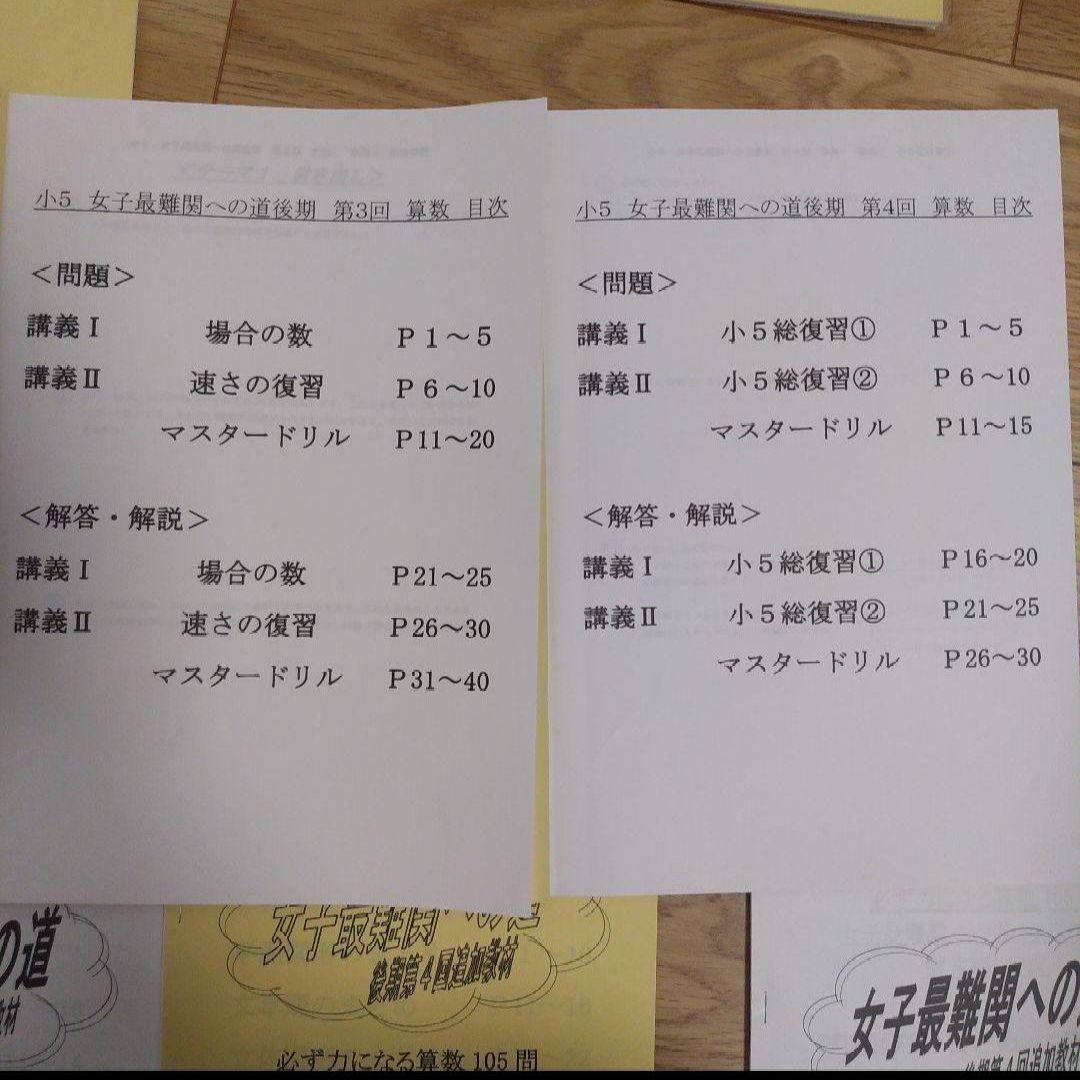 小5 女子最難関への道後期 第3回 算数 目次
＜問題＞
講義Ⅰ 場合の数 P1～5
講義Ⅱ 速さの復習 P6～10
マスタードリル P11～20
＜解答・解説＞
講義Ⅰ 場合の数 P21～25
講義Ⅱ 速さの復習 P26～30
マスタードリル P31～40
小5 女子最難関への道後期 第4回 算数 目次
＜問題＞
講義Ⅰ 小5総復習① P1～5
講義Ⅱ 小5総復習② P6～10
マスタードリル P11～15
＜解答・解説＞
講義Ⅰ 小5総復習① P16～20
講義Ⅱ 小5総復習② P21～25
マスタードリル P26～30
の道
材
女子最難関への道
後期第4回追加教材
必ず力になる算数105問
女子最難関への
後期第4回追加教材